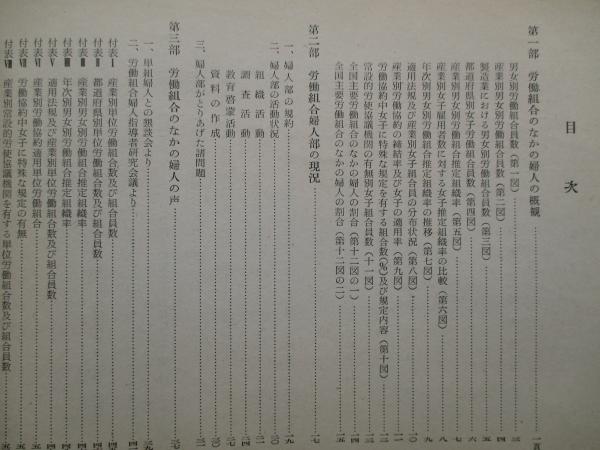 目次
第一部 労働組合のなかの婦人の概観
男女別労働組合員数(第一図)
産業別男女別労働組合員数(第二図)
製造業における男女別労働組合員数(第三図)
都道府県別女子労働組合員数(第四図)
産業別男女別労働組合推定組織率(第五図)
産業別女子雇用者数に対する女子推定組織率の比較(第六図)
年次別男女別労働組合推定組織率の推移(第七図)
適用法規及び産業別女子組合員の分布状況(第八図)
産業別労働協約の締結率及び女子の適用率(第九図)
労働協約中女子に特殊な規定を有する組合数(%)及び規定内容(第十図)
常設的労使協議機関の有無別女子組合員数(十一図)
全国主要労働組合のなかの婦人の割合(第十二図の一)
全国主要労働組合のなかの婦人の割合(第十二図の二)
第二部 労働組合婦人部の現況
一、婦人部の規約
二、婦人部の活動状況
組織活動
調査活動
教育啓蒙活動
資料の作成
三、婦人部がとりあげた諸問題
第三部 労働組合のなかの婦人の声
一、単組婦人との懇談会より
二、労働組合婦人指導者研究会議より
付表Ⅰ 産業別単位労働組合数及び組合員数
付表Ⅱ 都道府県別単位労働組合数及び組合員数
付表Ⅲ 産業別男女別労働組合推定組織率
付表Ⅳ 年次別男女別労働組合推定組織率
付表Ⅴ 適用法規及び産業別単位労働組合数及び組合員数
付表Ⅵ 産業別労働協約適用単位労働組合
付表Ⅶ 労働協約中女子に特殊な規定の有無
付表Ⅷ 産業別常設的労使協議機関を有する単位労働組合数及び組合員数